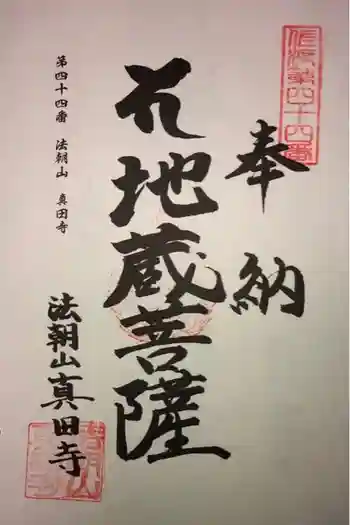 佐渡第四十四番
奉納
地蔵菩薩
第四十四番　法朝山　真田寺
法朝山真田寺